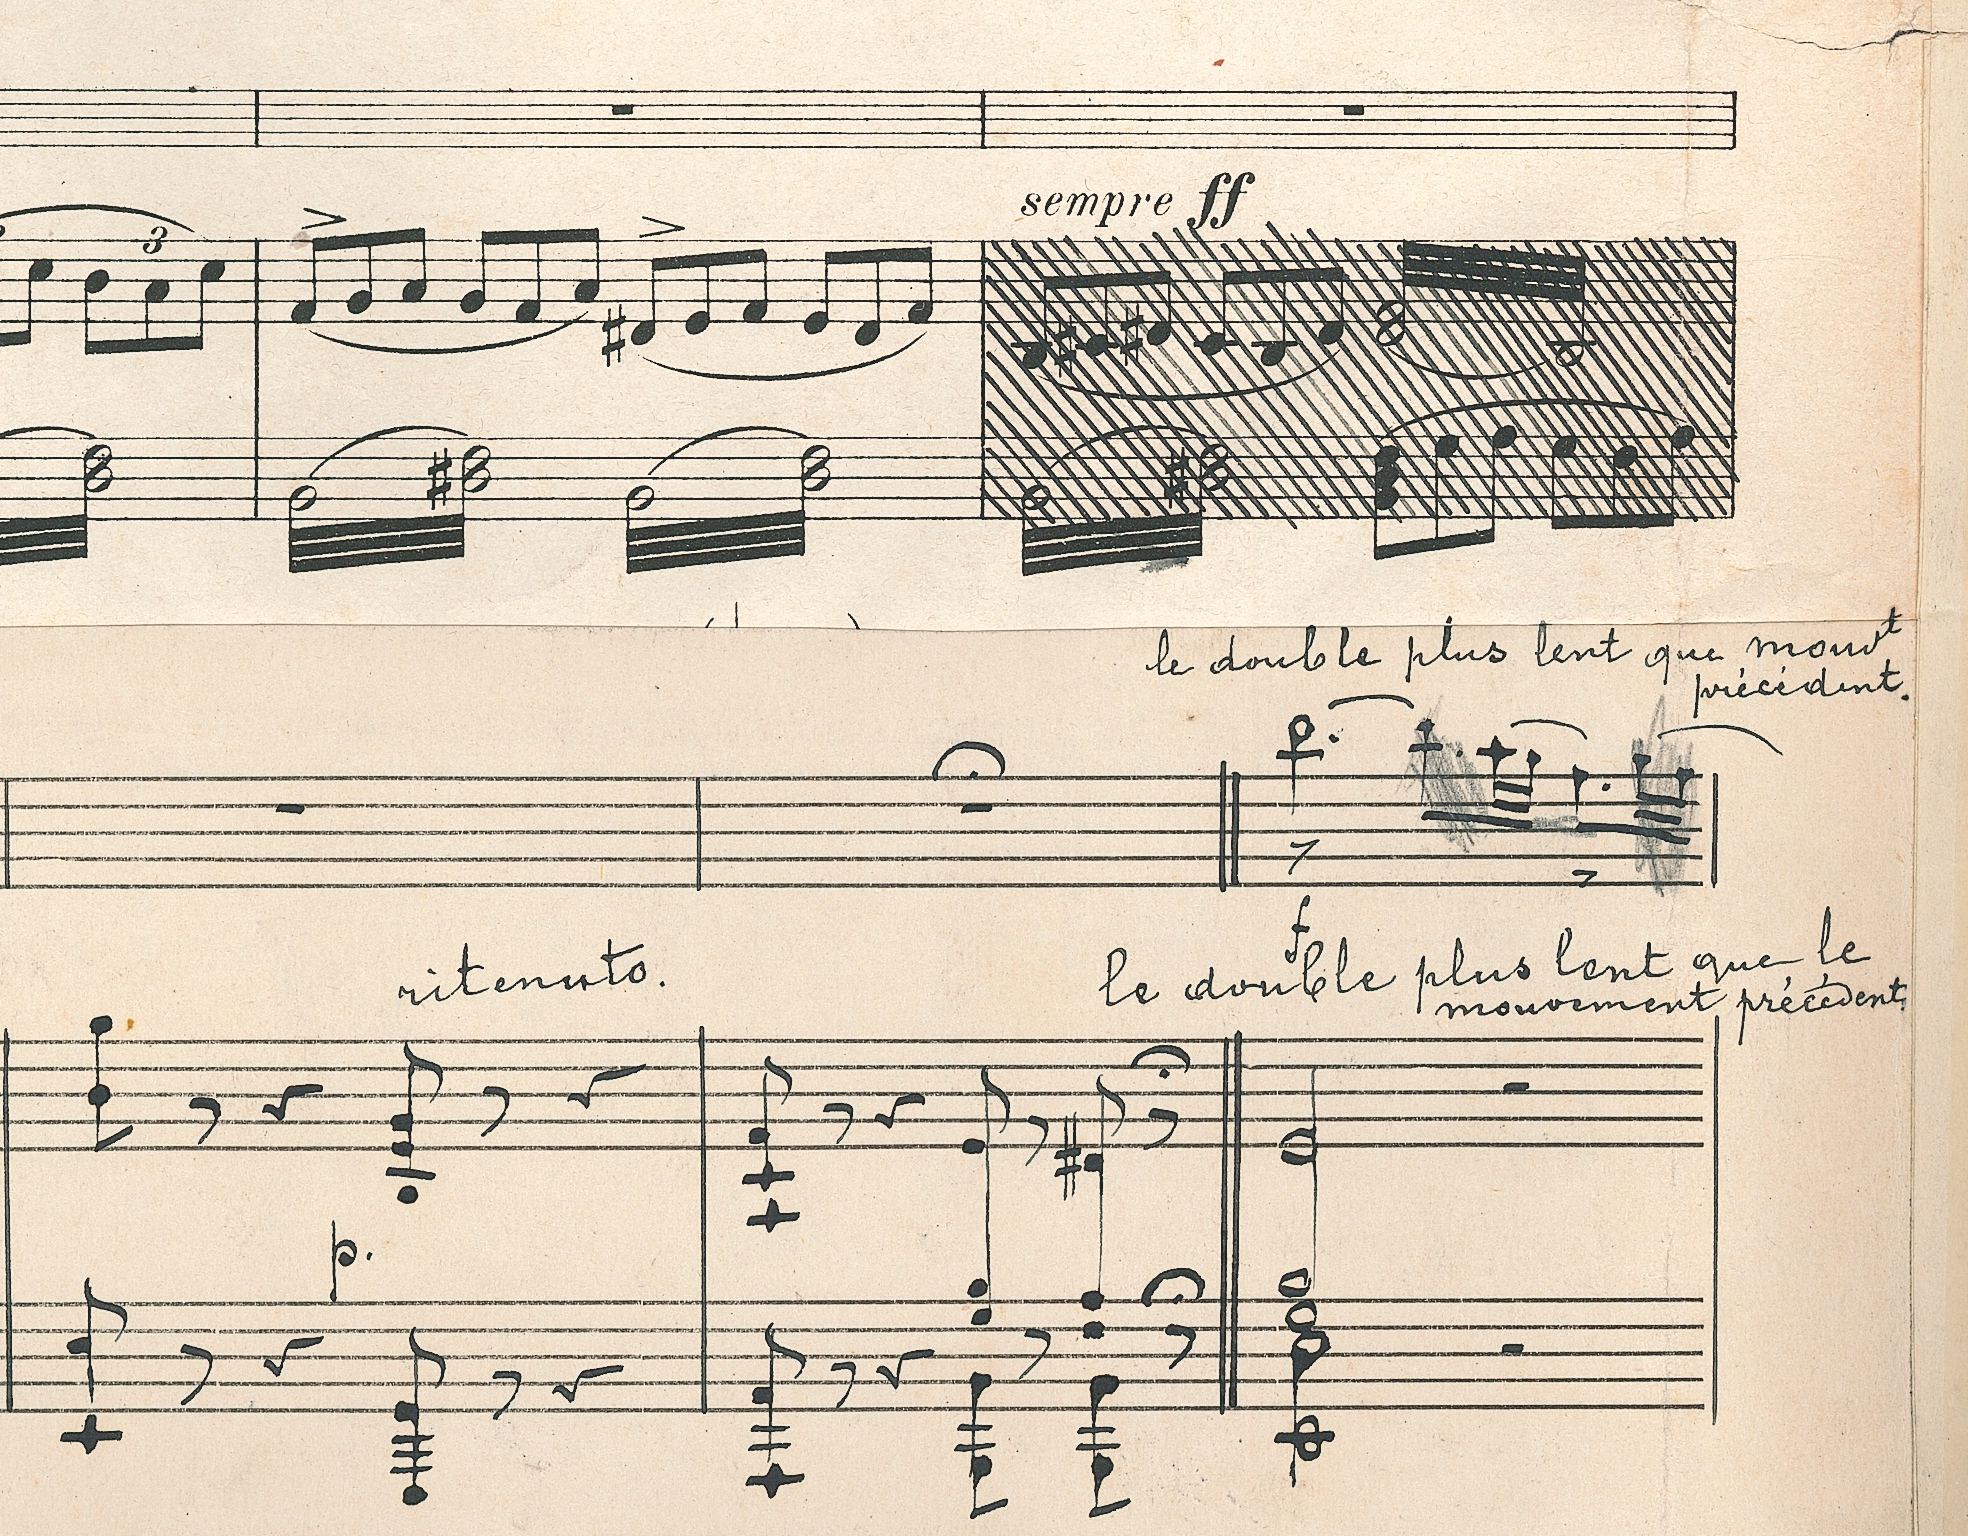 sempre ff
3
le double plus lent que mouvt
précédent.
f
ritenuto.
le double plus lent que le
mouvement précédent.
p.